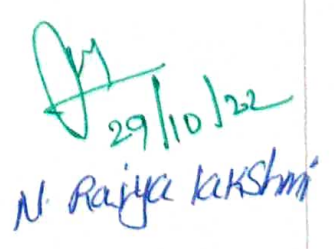 29/10/22
N. Rajya lakshmi